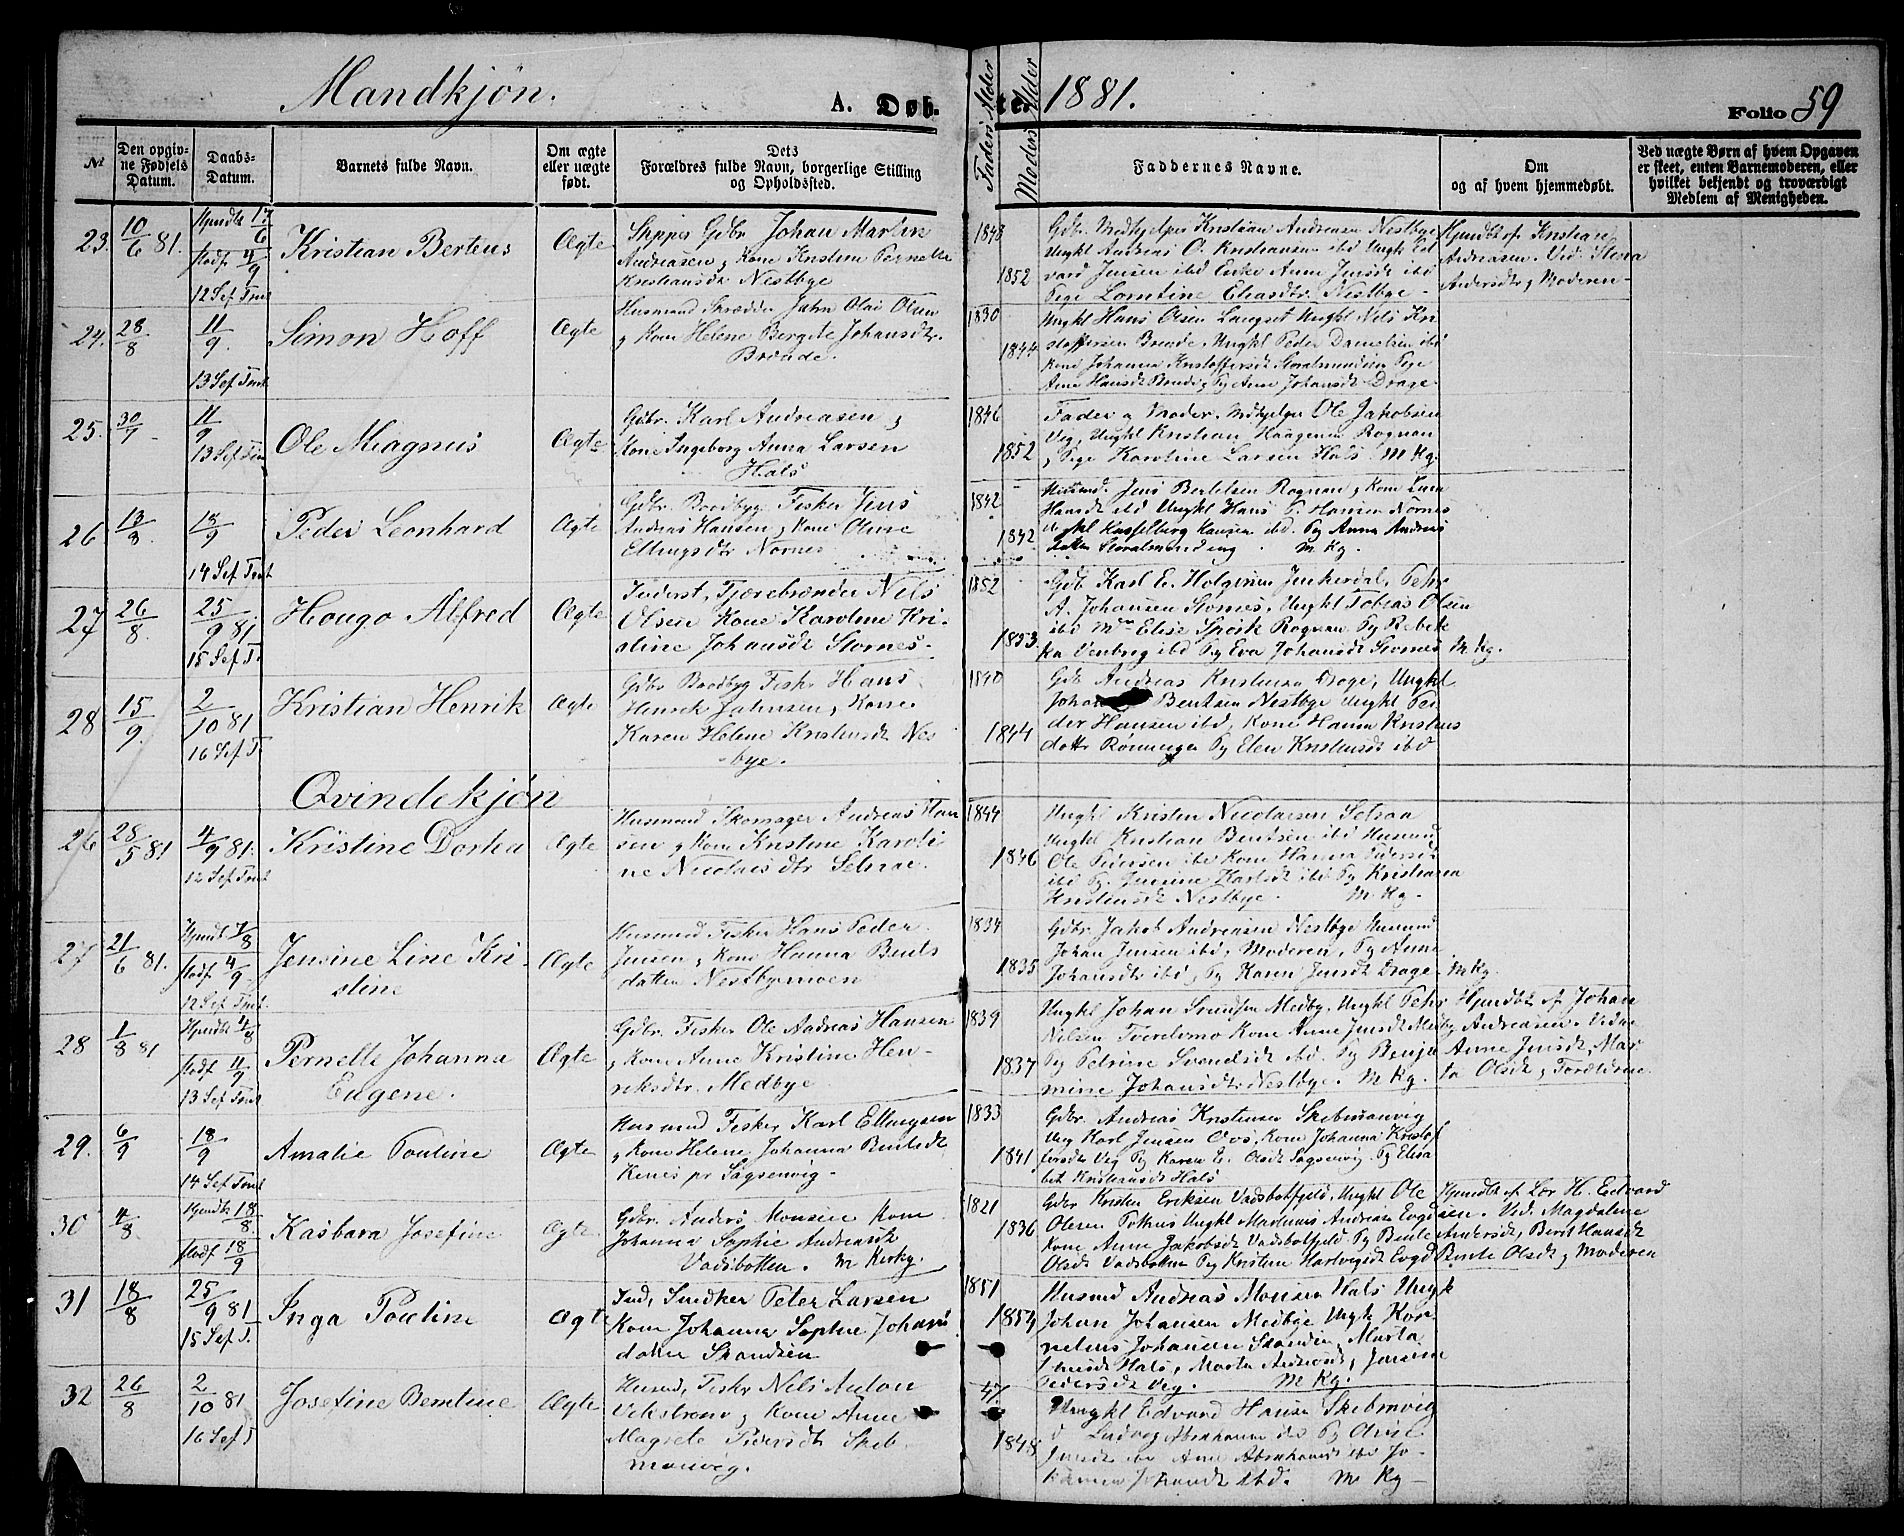 Mandkjøn. A. Døb- te. 1881. Folio 59
No
Den opgivne Fødsels Datum.
Daabs-Datum.
Barnets fulde Navn.
Om ægte eller uægte født.
Dets Forældres fulde Navn, borgerlige Stilling og Opholdssted.
Faders Alder
Moders Alder
Faddernes Navne.
Om og af hvem hjemmedøbt.
Ved uægte Børn af hvem Opgaven er skeet, enten Barnemoderen, eller hvilket bekjendt og troværdigt Medlem af Menigheden.
23. 10/6 81. Hjmdbt 17/6 Stadf 4/9 12 Sef Trint Kristian Berteus Ægte
Gdbr Johan Martin
Andreasen og Kone Kristen Pernelle
Kristiansdt Nestbye
1848 1852
Gdbr. Medhjelper Kristian Andreasen Nestbye
Ungkl Andreas O. Kristiansen ibd Ungkl Ed
vard Jensen ibd Enke Anne Jensdt ibd
Pige Lorntine Eliasdtr Nestbye -
Hjmdbt af Kristian
Andreasen. Vid: Stina
Andersdtr og Moderen -
24. 28/8 11/9. 13 Sef Trint Simon Hoff Ægte
Husmand Skrædder Jahn Olai Olsen
og Kone Helene Bergite Johansdtr.
Brænde.
1830 1844
Ungkl Hans Olsen Langset Ungkl Nils Kri
stoffersen Brende, Ungkl Peder Danielsen ibd
Kone Johanna Kristoffersdt Storalmendien Pige
Ane Hansdt Brende, Pg Ane Johansdt Drage
25. 30/7 - 11/9 13 Sef Trin Ole Magnus Ægte
Gdbr. Karl Andreasen og
Kone Ingeborg Anna Larsen
Hals
1846 1852
Fader og Moder. Mdhjelper Ole Jakobsen
Veg, Ungkl Kristian Haagensen Rognan
og Pige Karoline Larsen Hals M Kg.
26 13/8. 18/9 14 Sef Trint Peder Leonhard Ægte
Gdbr. Bødbyg Fisker Jens
Andreas Hansen og Kone Oline
Ellingsdtr Nornes
1842 1842
Husmd. Jens Bertelsen Rognan og Kone Lina
Hansdt ibd Ungkl Hans P. Hansen Nornes
Ungkl Hasselberg Hansen ibd. Pg Anna Andreas
datter Storalmending. M Kg.
27 26/8. 25/9 81 15 Sef T. Hougo Alfred Ægte
Inderst, Tjærebrænder Nels
Olsen Kone Karoline Kri-
stine Johansdt Stornes -
1852 1853.
Gdb Karl E. Holgersen Junkerdal, Pehr
A. Johansen Stornes, Ungkl Tobias Olsen
ibd M Elise Spörk Rognan Pg Rebek
ka Venberg ibd Pg Eva Johansdt Stornes M Kg.
28 15/9. 2/10 81 16 Sef T Kristian Henrik Ægte
Gdbr Baadbyg Fisker Hans
Henrik Jahnsen og Kone
Karen Helene Kristensdt Nes
bye.
1840 1844
Gdb Andreas Kristensen Drage, Ungkl
Johan Bentsen Nestbye Ungkl Pe
der Hansen ibd, Kone Hanna Kristens
dattr Rönningen Pg Elen Kristensdt ibd
Qvindekjøn
26 28/5 81 4/9 81. 12 Sef Trint Kristine Dortea Ægte
Husmand Skomager Andreas Han
sen og Kone Kristine Karoli
ne Nicolaisdtr Setraae.
1844 1846
Ungkl Kristen Nicolaisen Setraa
Ungkl Kristian Bentsen ibd Husmd
Ole Pedersen ibd Kone Hanna Pedersdt
ibd Pg. Jensine Karlsdt ibd Pg Kristianna
Kristensdt Nestbye. M. Kg.
27 21/6 81. Hjmdt 7/8 Stadf 4/9. 12 Sef Trint. Jensine Line Kri-
stine Ægte
Husmand Fisker Hans Peder
Jensen og Kone Hanna Bents
datter Nestbymoen
1834 1835
Gdbr. Jakob Andreasen Nestbye Husmd
Johan Jensen ibd, Moderen, Pg Anne
Johansdtr ibd, Pg Karen Jensdt Drage. M Kg.
28 1/8 81 Hjmdt 4/8 Stadf 11/9 13 Sef Trint Pernelle Johanna
Eugene. Ægte
Gdbr. Fisker Ole Andreas Hansen
og Kone Anne Kristine Hen-
riksdtr. Medbye
1839 1837
Ungkl Johan Svendsen Medby, Ungkl Pehr
Nilsen Tverelvmo Kone Anne Jensdt Medby
Pg Petrine Svendsdt ibd. Pg Benja
mine Johansdtr Nestbye. M Kg.
Hjmdbt af Johan
Andreasen. Vidne
Anne Jensdt, Mar-
ta Olsdt og Forældrene.
29. 6/9 18/9 14 Sef Trint Amalie Pouline Ægte
Husmand Fisker Karl Ellingsen
og Kone Helene Johanna Bentsdt
Kenes pr Sagsenvig -
1833 1841
Gdbr. Andreas Kristensen Skibmanvig
Ung Karl Jensen Ovs, Kone Johanna Kristof
fersdt Veg Pg Karen E. Olsdt Sagsenvig, Pg Elisa
bet Kristensdt Hals
30 4/8 Hjmdt 18/8. Stadf 18/9 Kasbara Josefine Ægte
Gdbr. Anders Monsen Kone
Johanna Sophie Andreasdt
Vadsbotten. M Kirkg.
1821 1836
Gdbr Kristen Eriksen Vadsbotfjeld, Ungkl Ole
Olsen Pothus Ungkl Martinus Andreasen Evgd
Kone Anne Jakobsdt Vadsbotfjeld Pg Bente
Olsdt Vadsbotten Pg Kristine Hartvigsdt Evgd
Hjmdbt af Lær H. Edvard
sen. Vid. Magdaline
Andersdt, Berit Hansdt
Bente Olsdt og Moderen
31 18/8 25/9 81 15 Sef T. Inga Pouline Ægte
Ind, Snedker Peter Larsen
Kone Johanna Sophie Johans
datter Skandsen
1851 1854
Husmd Andreas Monsen Hals Ungk
Johan Johansen Medbye Ungk Kor
nelius Johansen Skandsen, Marta
Jensdt Hals, Marta Andreasdt, Jensine
Pedersdt Veg. M Kg.
32 26/8 2/10 81 16 Sef T Josefine Berntine Ægte
Husmd, Fiskr Nels Anton
Vekstrøm og Kone Anne
Magrete Pedersdt Skib-
manvig.
47. 1848
Ungkl Edvard Hansen Skibmvig
Ludvig Abrahamsen ibd Pg Oline
Jensdt ibd Ane Abrahamsdt ibd Jo
hanna Johansdt ibd. M Kg -